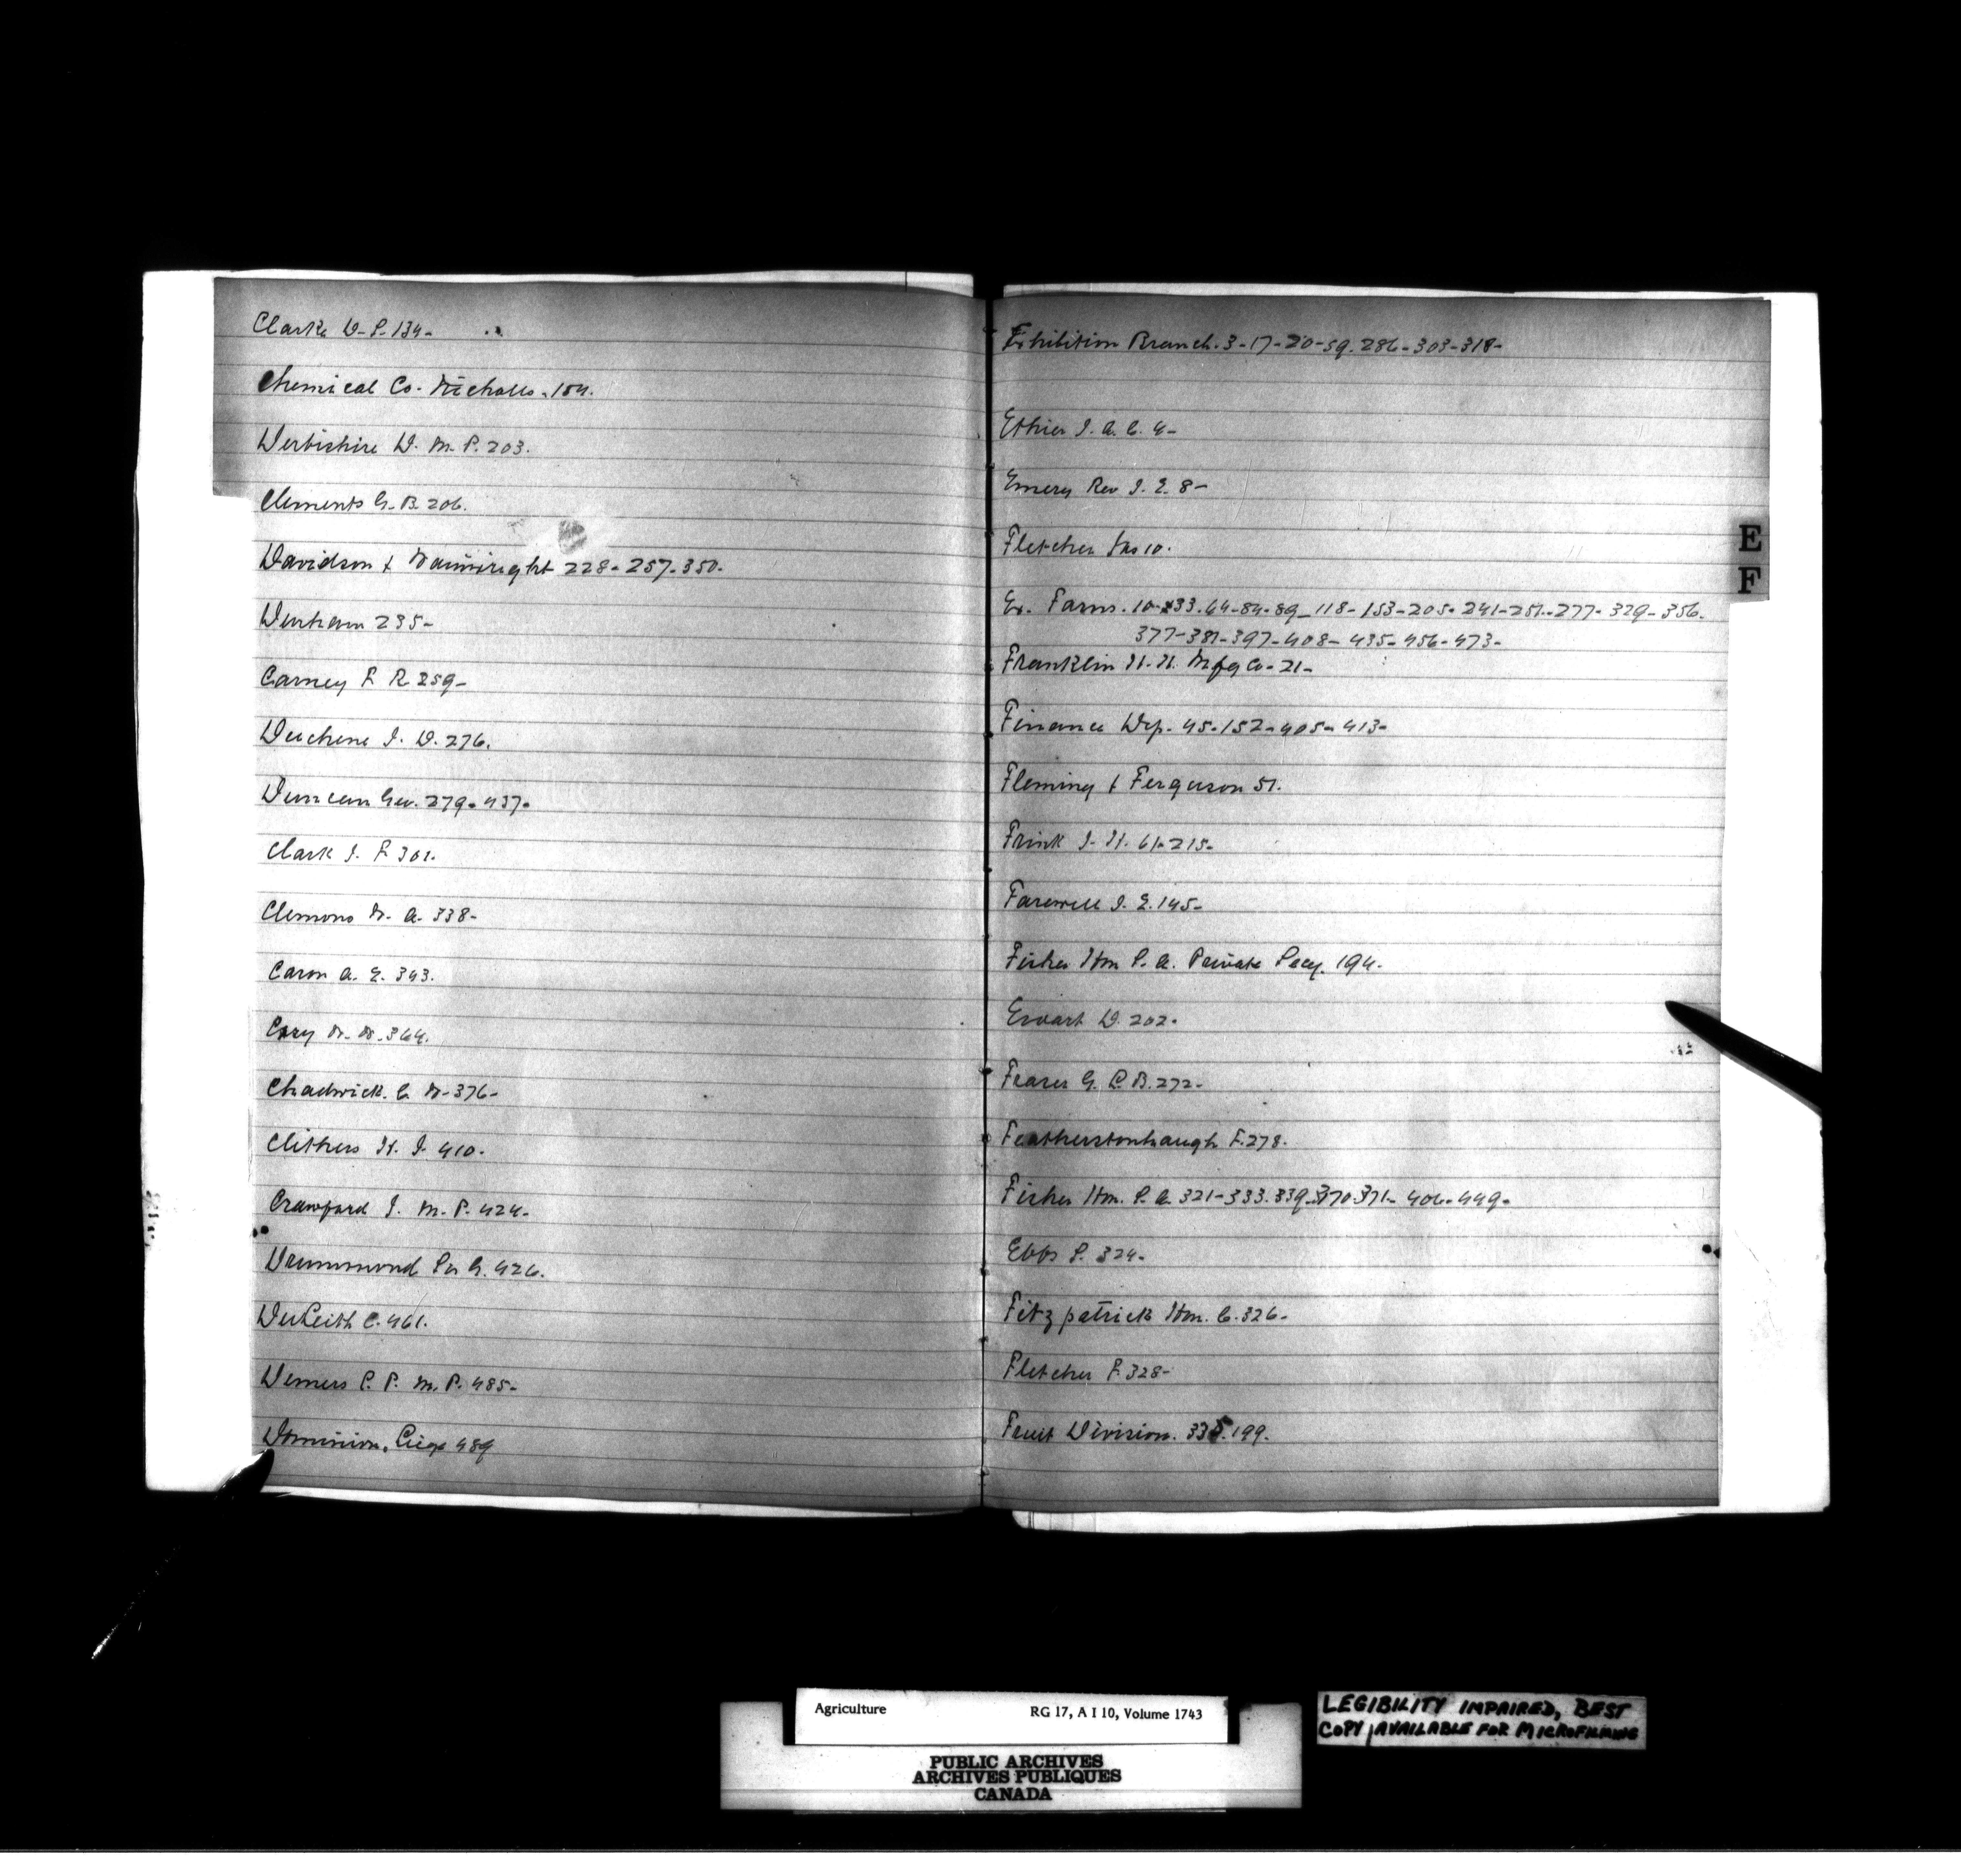 Clarke D. S. 134-
Chemical Co. Nicholls. 154.
Derbishire D. M. P. 203.
Clements G. B. 206.
Davidson & Wainwright 228-257-350.
Denham 235-
Carney F. R. 259-
Deschene J. D. 276.
Duncan Geo. 279-437-
Clark J. F. 301.
Clemons W. A. 338-
Caron A. E. 343.
Cory W. W. 364.
Chadwick C. W. 376-
Clithers H. J. 410.
Crawford J. M. P. 424-
Drummond Sir G. 426.
DeKeith C. 461.
Demers L. P. M. P. 485-
Dominion 489
Exhibition Branch. 3-17-20-59. 286-303-318-
Ethier J. A. C. 4-
Emery Rev J. E. 8-
Fletcher Jas 10.
Ex. Farms. 10-33. 64-84-89-118-153-205-241-251-277-329-356.
377-381-397-408-435-456-473-
Franklin H. H. Mfg Co-21-
Finance Dep. 45-152-405-413-
Fleming & Ferguson 51.
Frink J. H. 61-215-
Farewell J. E. 145-
Fisher Hon S. A. Private Secy. 194.
Ewart D. 202.
Fraser G. L. B. 272-
Featherstonhaugh F. 278.
Fisher Hon. S. A. 321-333. 339-370-371-406-449-
Ebbs S. 324-
Fitzpatrick Hon. C. 326-
Fletcher F. 328-
Fruit Division. 335. 199.
E
F
Agriculture RG 17, A I 10, Volume 1743
PUBLIC ARCHIVES
ARCHIVES PUBLIQUES
CANADA
LEGIBILITY IMPAIRED, BEST
COPY AVAILABLE FOR MICROFILMING